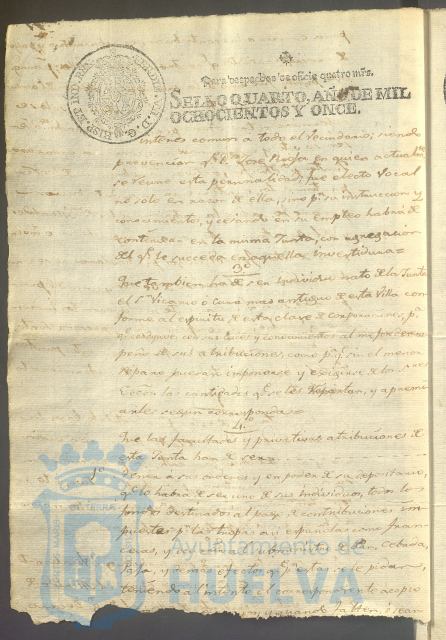 Para despachos de oficio quatro mrs.
SELLO QUARTO, AÑO DE MIL
OCHOCIENTOS Y ONCE.
interes comun a todo el Vecindario; siendo
prevencion q.e D.n José en quien actualm.te
se reune esta personalidad, fue electo Vocal
no solo en razon de ella, sino p.r su instruccion y
conocimiento, y cesando en su empleo habrá de
continuar en la misma Junta, con agregacion
del q.e le suceda en aquella investidura=
3.º
Que tambien ha de ser individuo nato de la Junta
el S.r Vicario ó Cura mas antiguo de esta Villa con
forme al espiritu de esta clase de corporaciones, p.a
q.e coadyuve con sus luces y conocimientos al mejor desem
peño de sus atribuciones, como p.a q.e sin el menor
reparo pueda imponerse y exigirse de los
Eccos las cantidades q.e se les repartan, y apremi
arles segun corresponda=
4.º
Que las facultades y privativas atribuciones de
esta Junta han de ser=
1.º Tener a sus ordenes y en poder de su depositario,
q.e lo habrá de ser uno de sus individuos, todos los
fondos destinados al pago de contribuciones im
puestas p.r las tropas asi españolas como fran
cesas, y de los subministros de pan, cebada,
Paja, y demas efectos q.e p.r estas se le pidan,
teniendo al intento el correspondiente acopio
y quando falten, ó sean
Ayuntamiento de
HUELVA